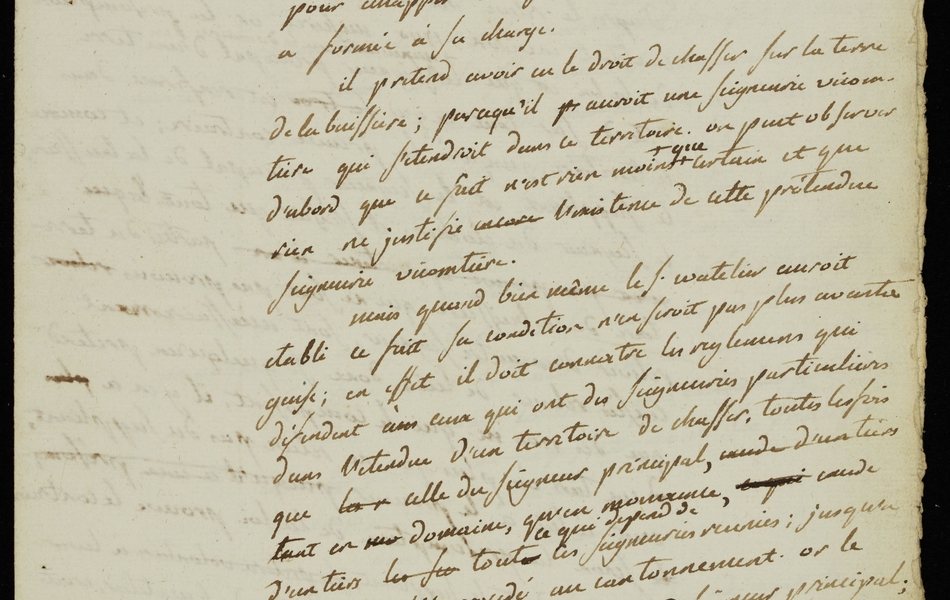 pour
a formée à sa charge.
il pretend avoir eu le droit de chasser sur la terre
de la buissiere; parcequ'il auroit une seigneurie vicom-
tiere qui s'etendroit dans ce territoire. on peut observer
d'abord que ce fait n'est rien moins que certain et que
rien ne justifie encore l'existence de cette prétendue
seigneurie vicomtiere.
mais quand bien même le s. watelier auroit
etabli ce fait sa condition n'en seroit pas plus avanta
geuse; en effet il doit connoitre les reglemens qui
défendent à ceux qui ont des seigneuries particulieres
dans l'etendue d'un territoire de chasser, toutes les fois
que celle du seigneur principal, excede d'un tiers
tant en domaine, qu'en mouvance, excede
ce que dépend de
d'un tiers toutes les seigneuries reunies; jusqu'a
au cantonnement. or le
principal;